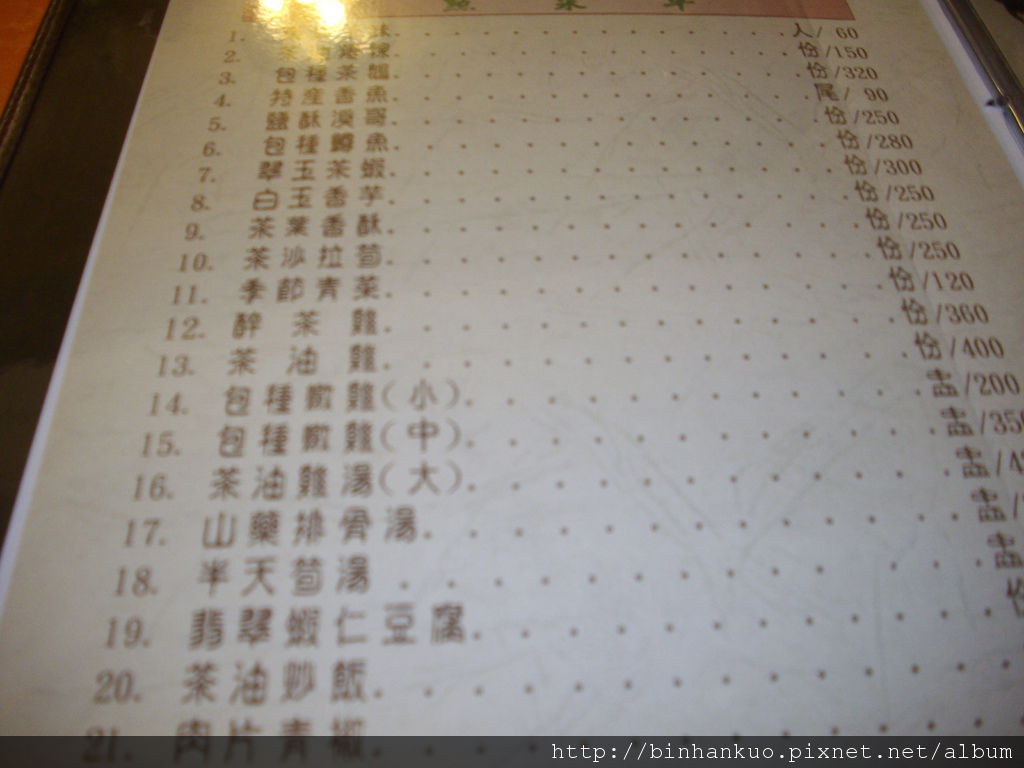 點 菜 單
1. . . . 人/ 60
2. . . . 份/150
3. 包種茶 . . . 份/320
4. 特産香魚 . . . 尾/ 90
5. 鹽酥溪哥 . . . 份/250
6. 包種鱒魚 . . . 份/280
7. 翠玉茶蝦 . . . 份/300
8. 白玉香芋 . . . 份/250
9. 茶葉香酥 . . . 份/250
10. 茶沙拉筍 . . . 份/250
11. 季節青菜 . . . 份/120
12. 醉茶雞 . . . 份/360
13. 茶油雞 . . . 份/400
14. 包種燉雞(小) . . . 盅/200
15. 包種燉雞(中) . . . 盅/350
16. 茶油雞湯(大) . . . 盅/4
17. 山藥排骨湯 . . . 盅/
18. 半天筍湯 . . . 盅
19. 翡翠蝦仁豆腐 . . . 份
20. 茶油炒飯 . . .
21. 肉片青椒 . . .
http://binhankuo.pixnet.net/album